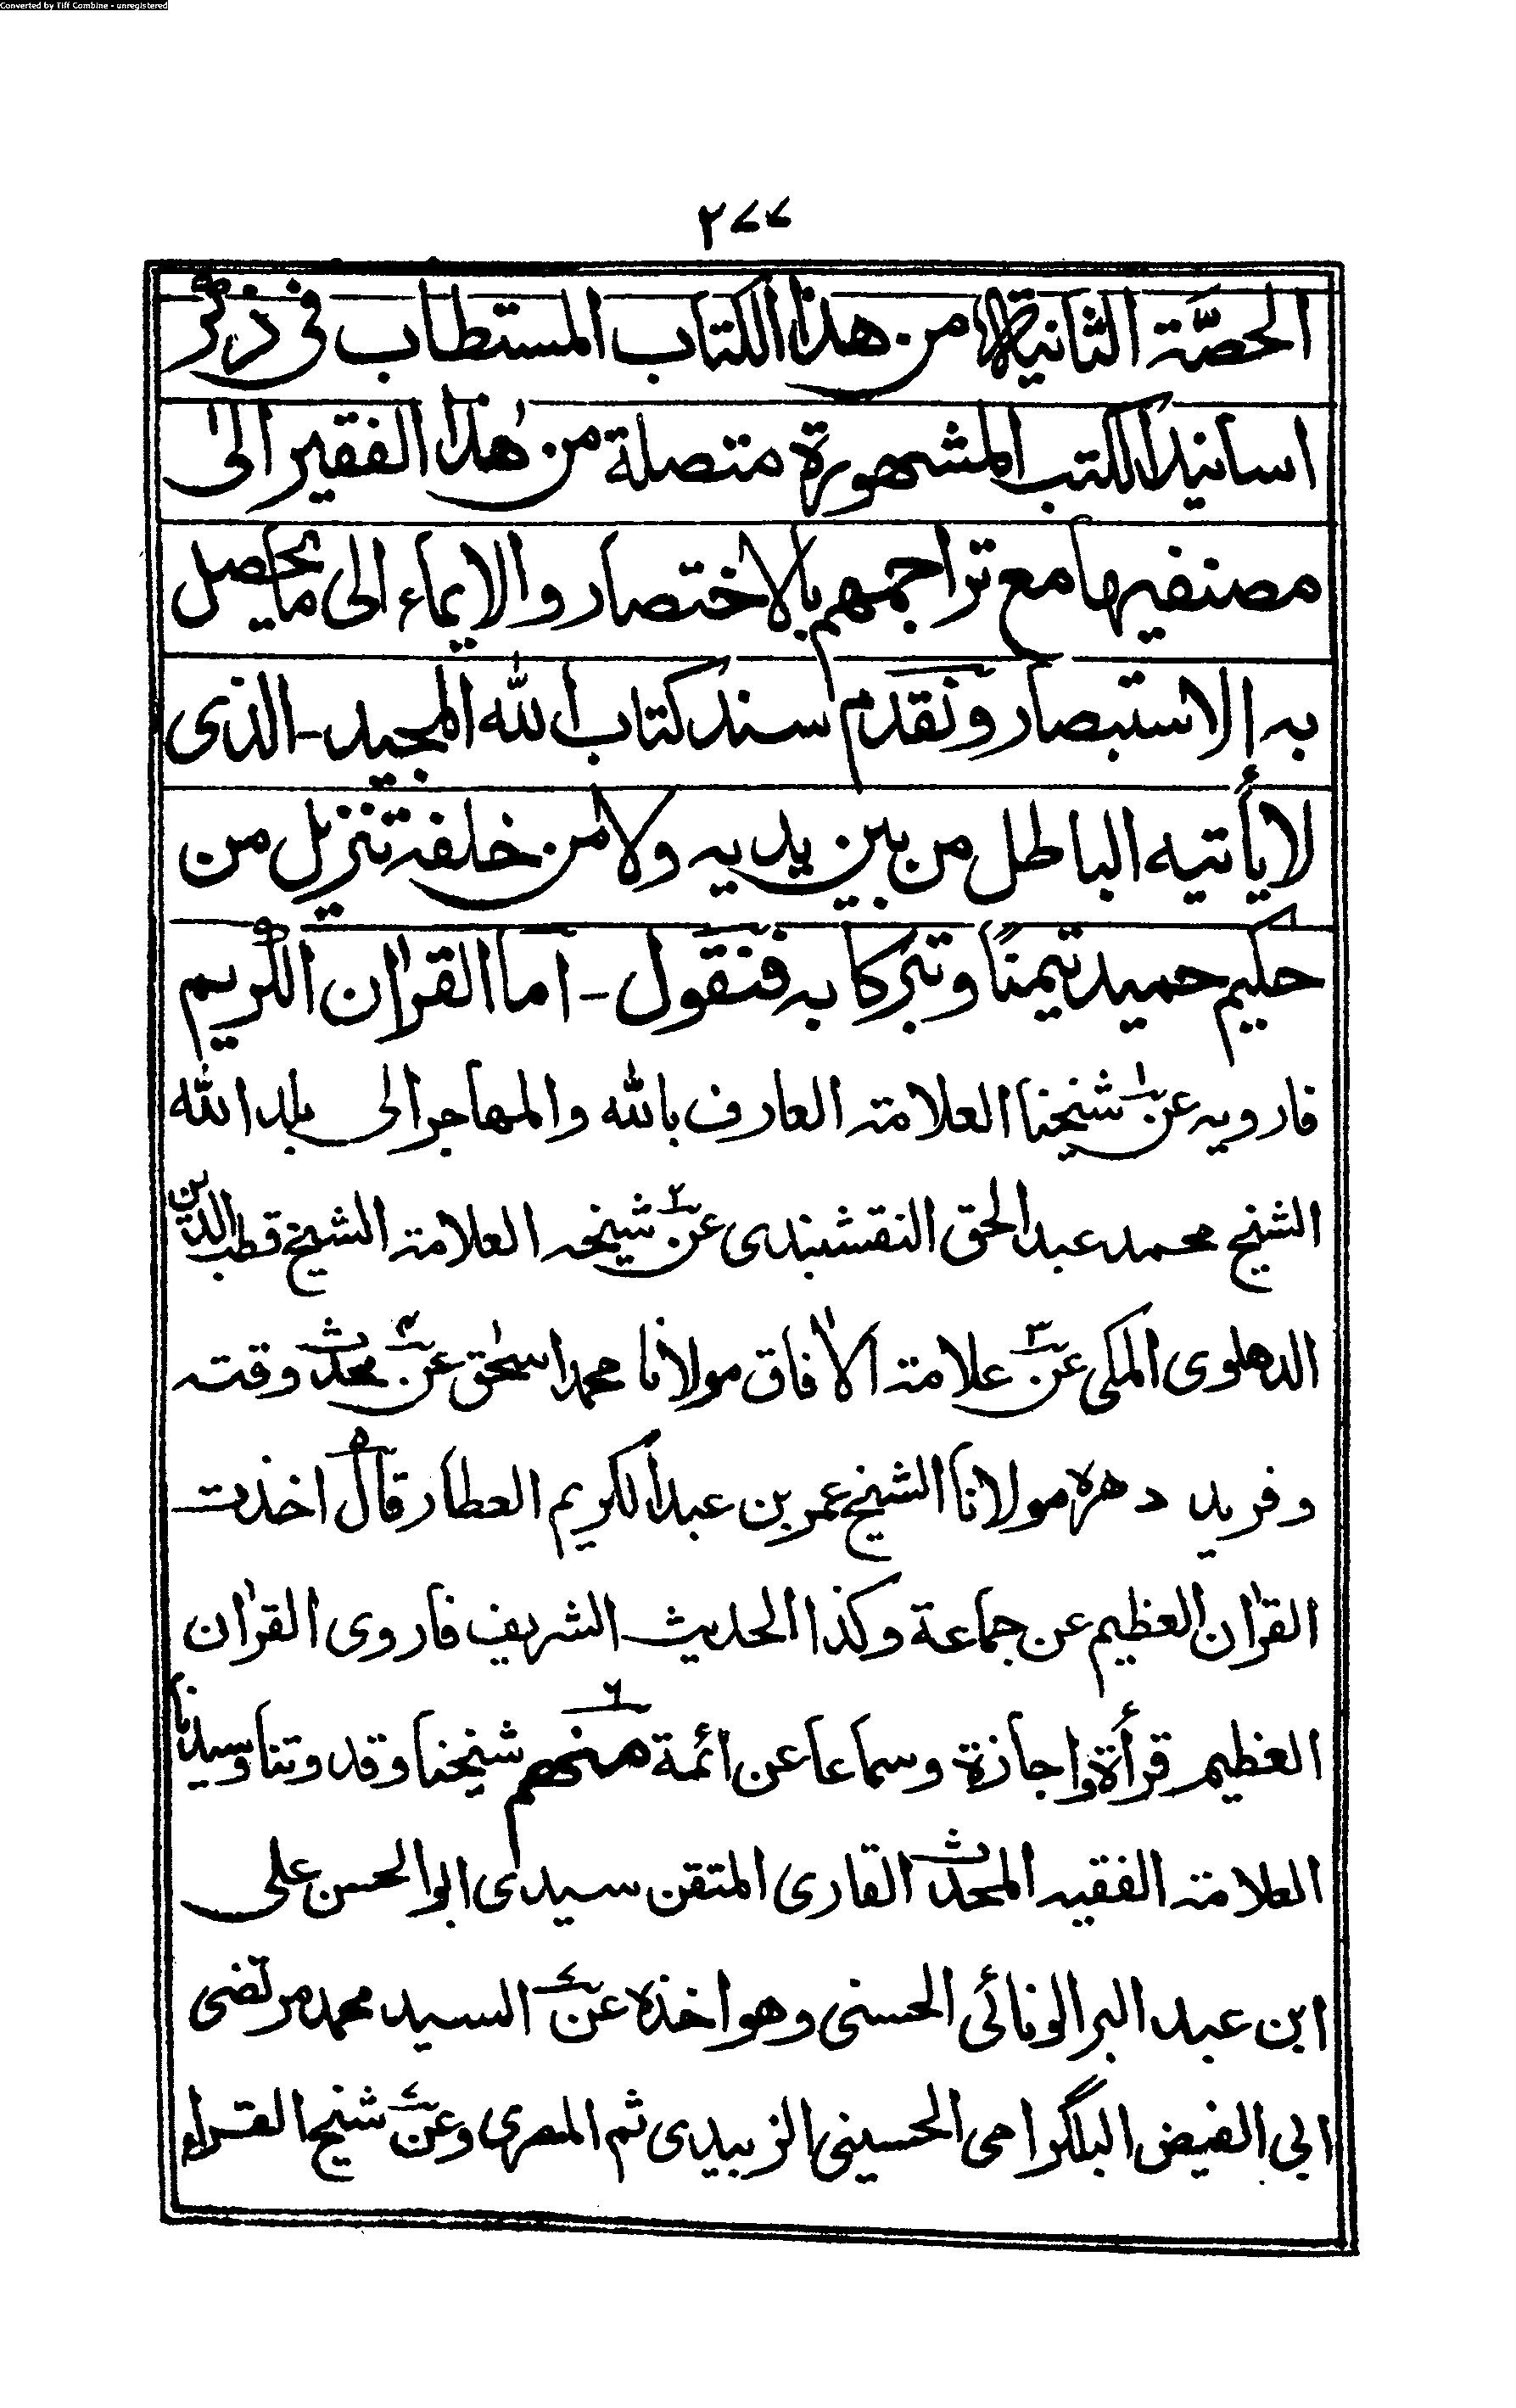 Converted by Tiff Combine - unregistered
٢٧٧
الحصّة الثانية من هذا الكتاب المستطاب فى ذكر
اسانيد الكتب المشهورة متصلة من هٰذا الفقير الىٰ
مصنفيها مع تراجمهم بالاختصار والايماء الى ما يحصل
به الاستبصار ونقدم سند كتاب الله المجيد - الذى
لا يأتيه الباطل من بين يديه ولا من خلفه تنزيل من
حكيم حميد تيمنًا وتبركا به فنقول - اما القرآن الكريم
فارويه عن١ شيخنا العلامة العارف بالله والمهاجر الى بلد الله
الشيخ محمد عبد الحق النقشبندى عن٢ شيخه العلامة الشيخ قطب الدين
الدهلوى المكى عن٣ علامة الآفاق مولانا محمد اسحٰق عن٤ محدث وقته
وفريد دهره مولانا الشيخ عمر بن عبد الكريم العطار قال٥ اخذت
القرآن العظيم عن جماعة وكذا الحديث الشريف فاروى القرآن
العظيم قرأة واجازة وسماعا عن ائمة منهم٦ شيخنا وقدوتنا وسيدنا
العلامة الفقيه المحدث القارى المتقن سيدى ابو الحسن على
ابن عبد البر الونائى الحسنى وهو اخذه عن٧ السيد محمد مرتضى
ابى الفيض البلگرامى الحسينى الزبيدى ثم المصرى وعن شيخ القراء